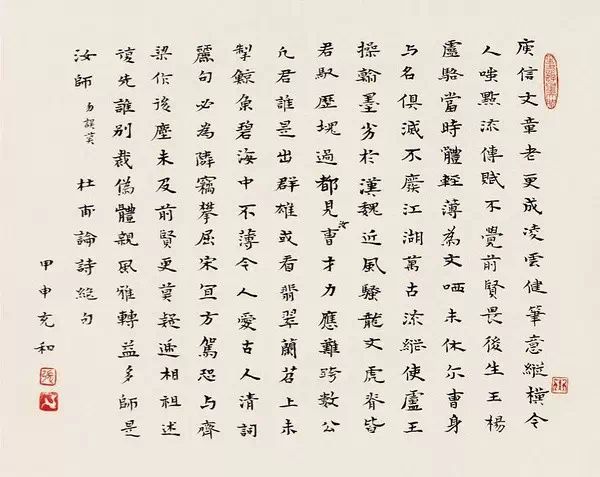 庾信文章老更成凌雲健筆意縱橫今
人嗤點流傳賦不覺前賢畏後生王楊
盧駱當時體輕薄為文哂未休尔曹身
与名俱滅不廢江湖萬古流縱使盧王
操翰墨劣於漢魏近風騷龍文虎脊皆
君馭歷塊過都見汝曹才力應難跨數公
凡君誰是出群雄或看翡翠蘭苕上未
掣鯨魚碧海中不薄今人愛古人清詞
麗句必為隣竊攀屈宋宜方駕恐与齊
梁作後塵未及前賢更莫疑遞相祖述
復先誰別裁偽體親風雅轉益多師是
汝師 誤莫 杜甫論詩絕句
甲申充和
張